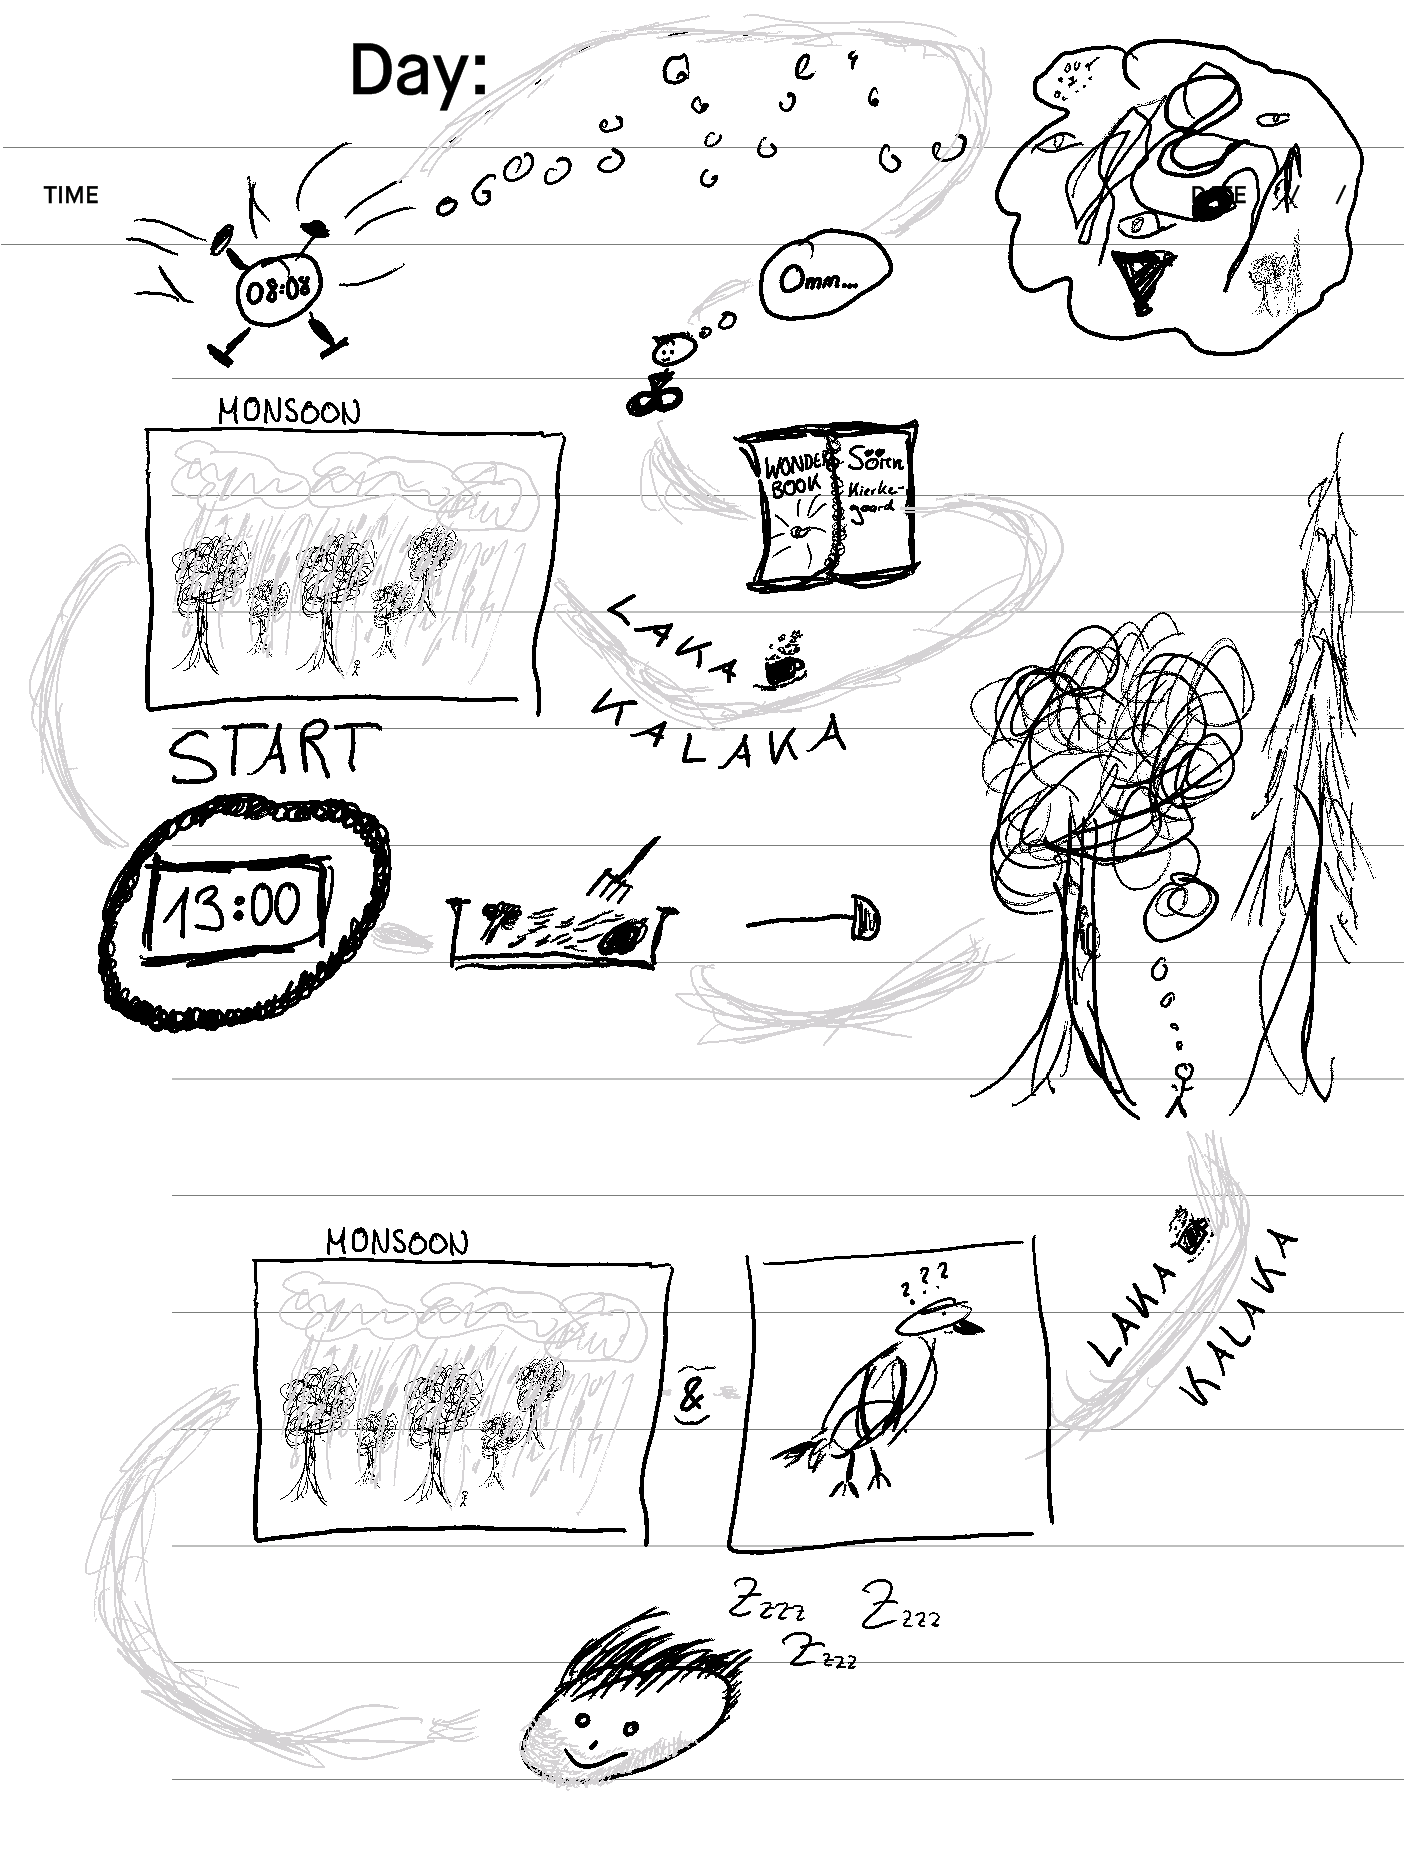 Day:
TIME
DATE / /
OUT
08:08
Omm...
MONSOON
WONDER
BOOK
Sören
Kierke-
gaard
LAKA
KALAKA
START
13:00
MONSOON
???
&
LAKA
KALAKA
Zzzz Zzzz
Zzzz